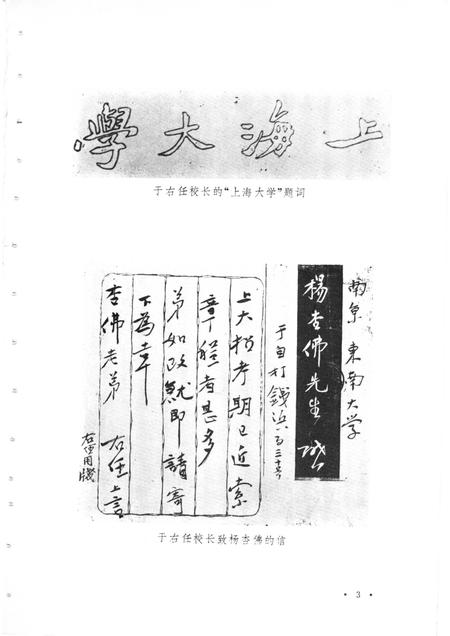 上海大學
于右任校长的“上海大学”题词
南京 東南大学
楊杏佛先生
于自打鉄浜
上大招考期已近索
章程者甚多
弟如改就即請寄
下為幸
杏佛老弟 右任上言
右任用牋
于右任校长致杨杏佛的信
· 3 ·